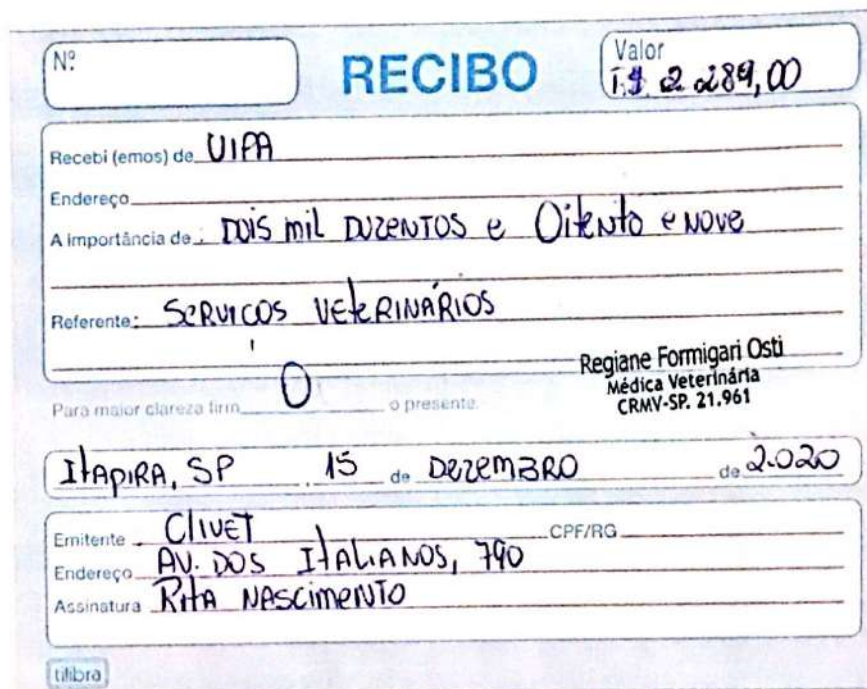 Nº
RECIBO
Valor
R$ 2.289,00
Recebi (emos) de UIPA
Endereço
A importância de: DOIS mil DUZENTOS e Oitento e NOVE
Referente: SERVIÇOS VETERINÁRIOS
Regiane Formigari Osti
Médica Veterinária
CRMV-SP. 21.961
Para maior clareza firm O o presente.
ITAPIRA, SP 15 de DEZEMBRO de 2.020
Emitente CLIVET CPF/RG
Endereço AV. DOS ITALIANOS, 790
Assinatura RITA NASCIMENTO
tilibra